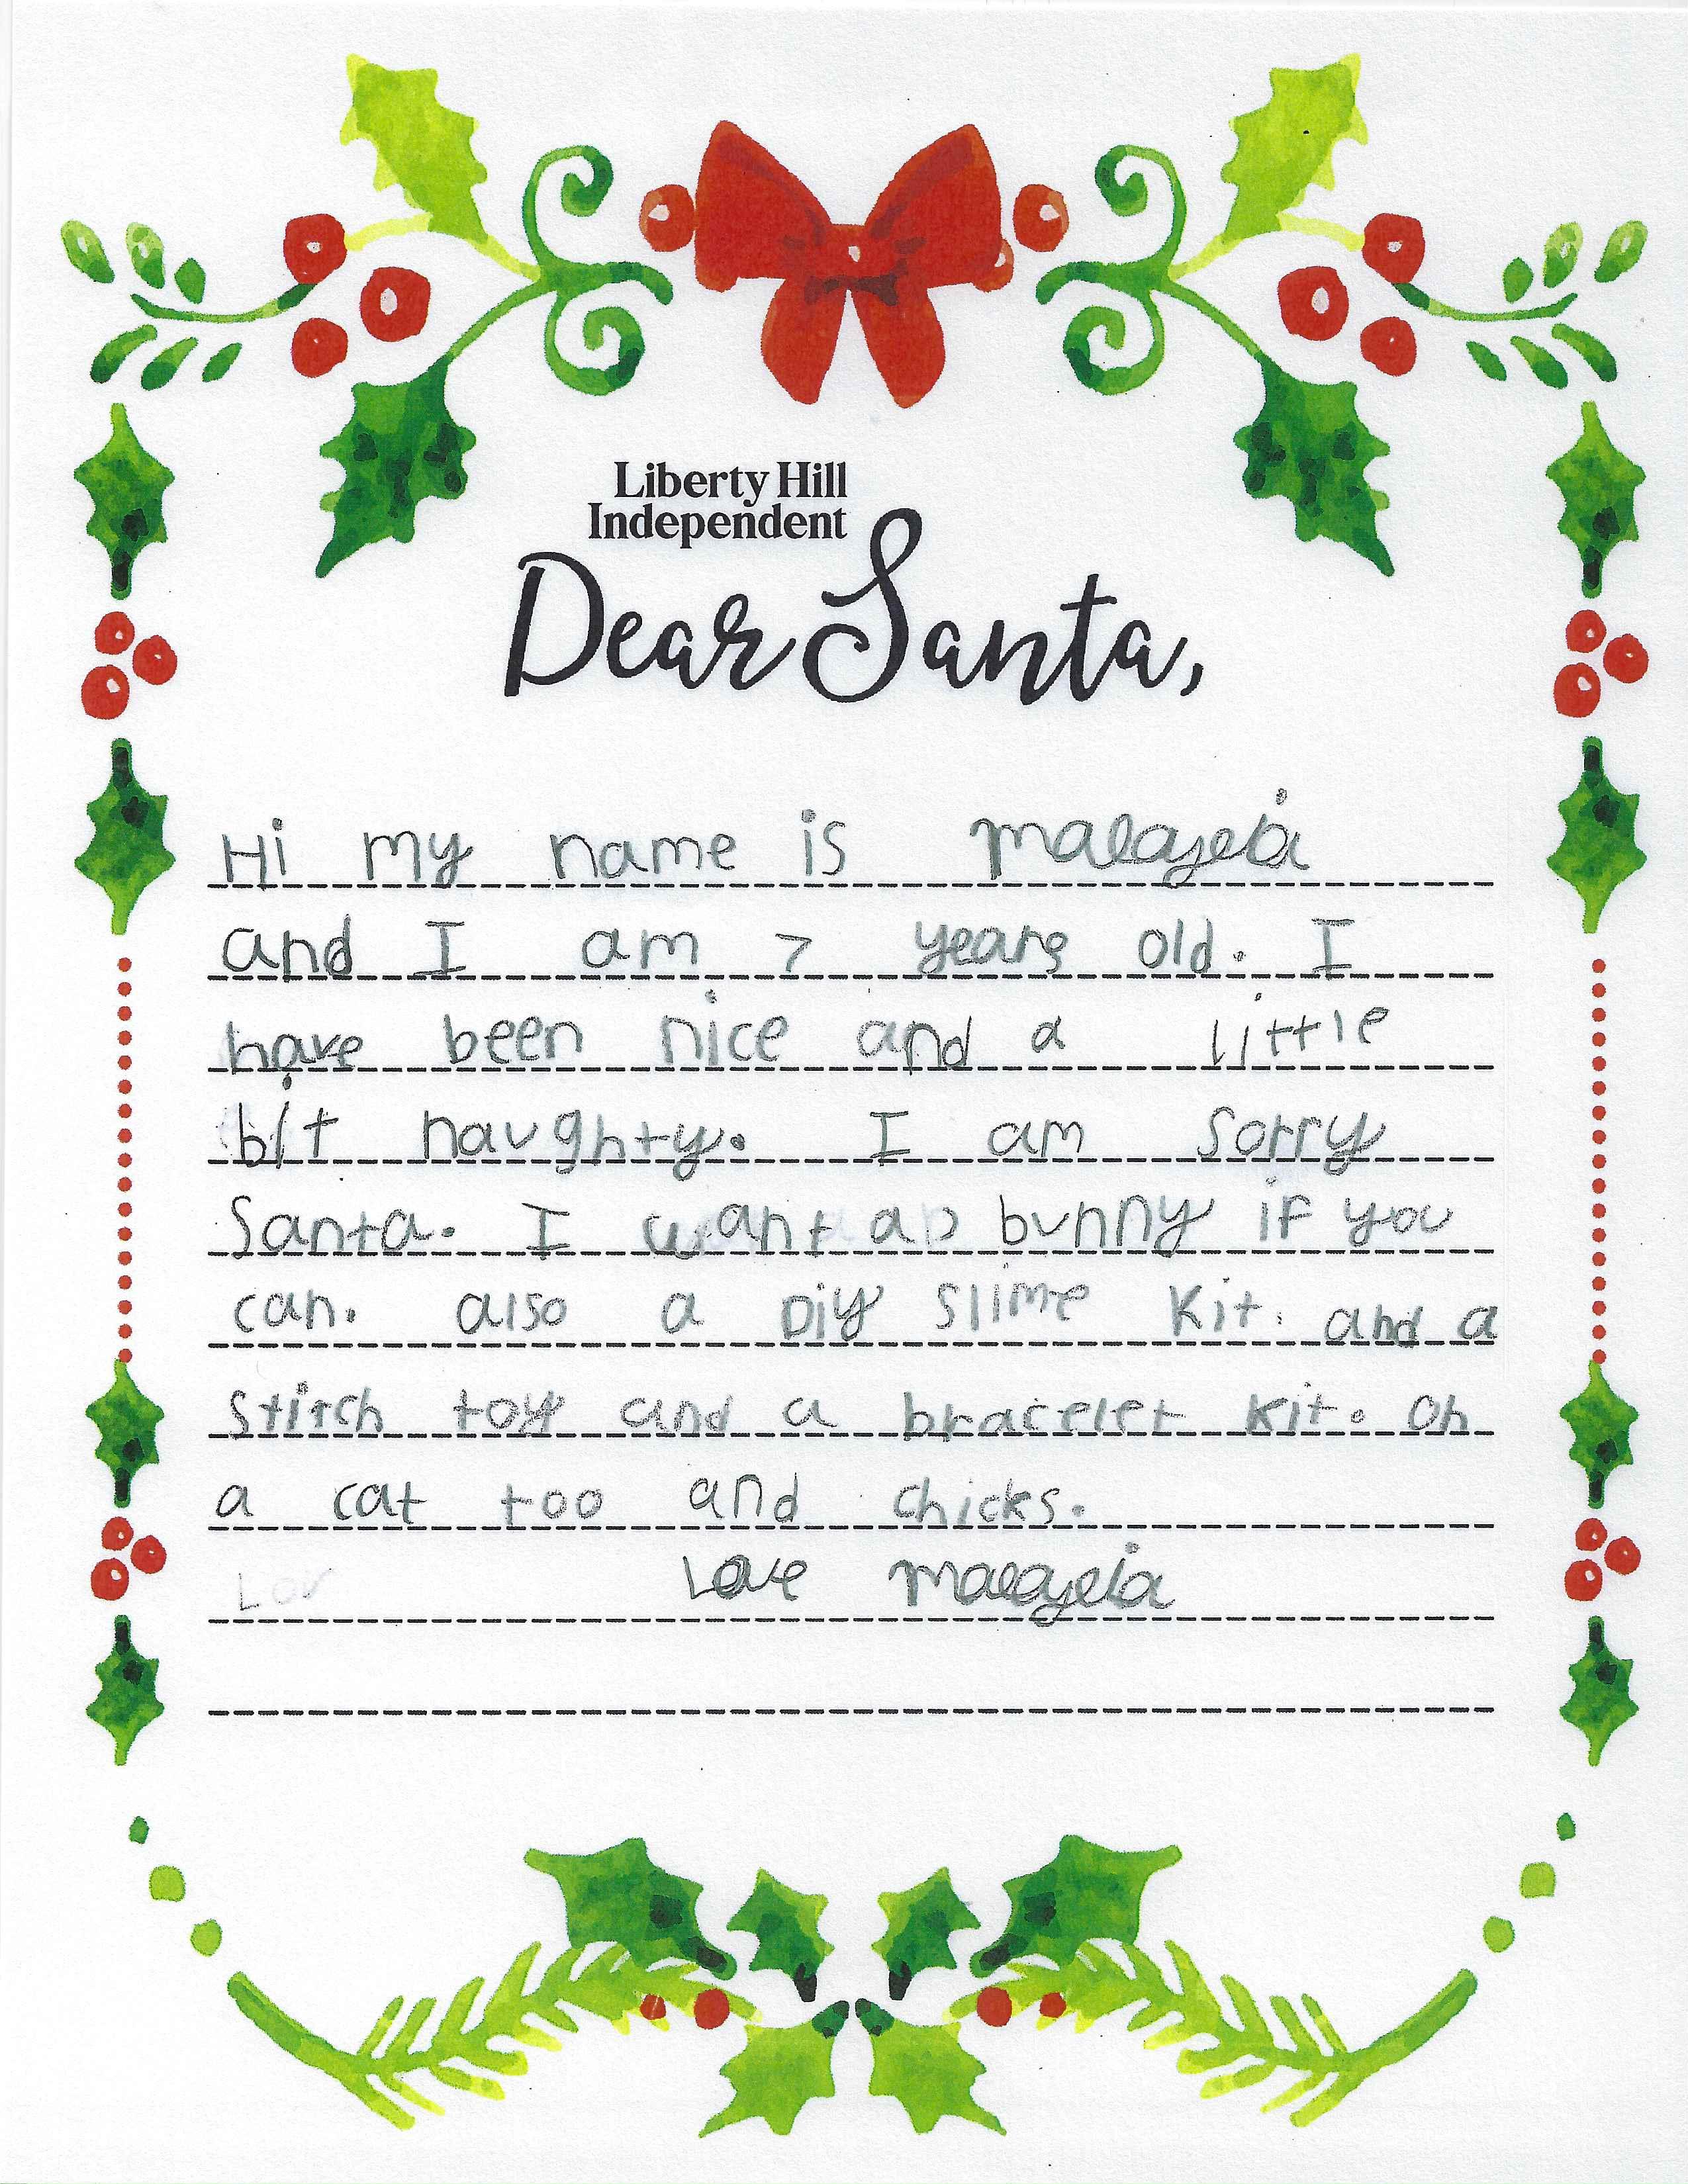 Liberty Hill
Independent
Dear Santa,
Hi my name is
and I am 7 years old. I
have been nice and a little
bit naughty. I am sorry
Santa. I want a bunny if you
can. also a Diy slime kit. and a
stitch toy and a bracelet kit. Oh
a cat too and chicks.
Love